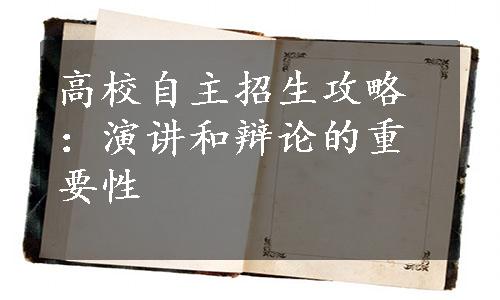 高校自主招生攻略
：演讲和辩论的重
要性